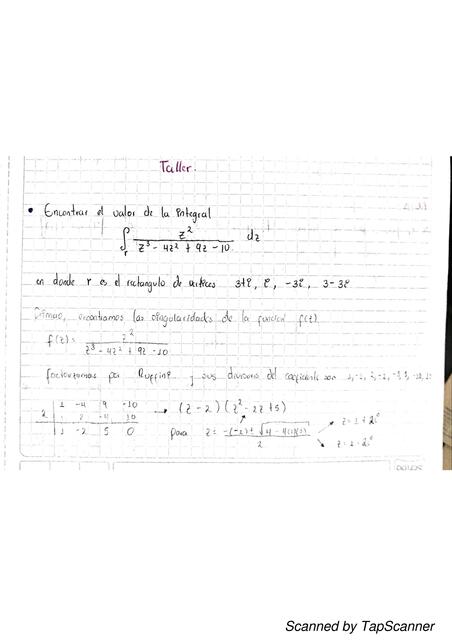 Taller.
• Encontrar el valor de la integral
∫r z² / (z³ - 4z² + 9z - 10) dz
en donde r es el rectangulo de vertices 3+i, i, -3i, 3-3i
Primero, encontramos las singularidades de la funcion f(z).
f(z) = z² / (z³ - 4z² + 9z - 10)
factorizamos por Ruffini y sus divisores del coeficiente son
1 -4 9 -10
2 | 2 -4 10 → (z-2)(z² - 2z + 5)
1 -2 5 0 para z = (-(-2) ± √(4 - 4(1)(5))) / 2
z = 1 + 2i
z = 1 - 2i
Scanned by TapScanner